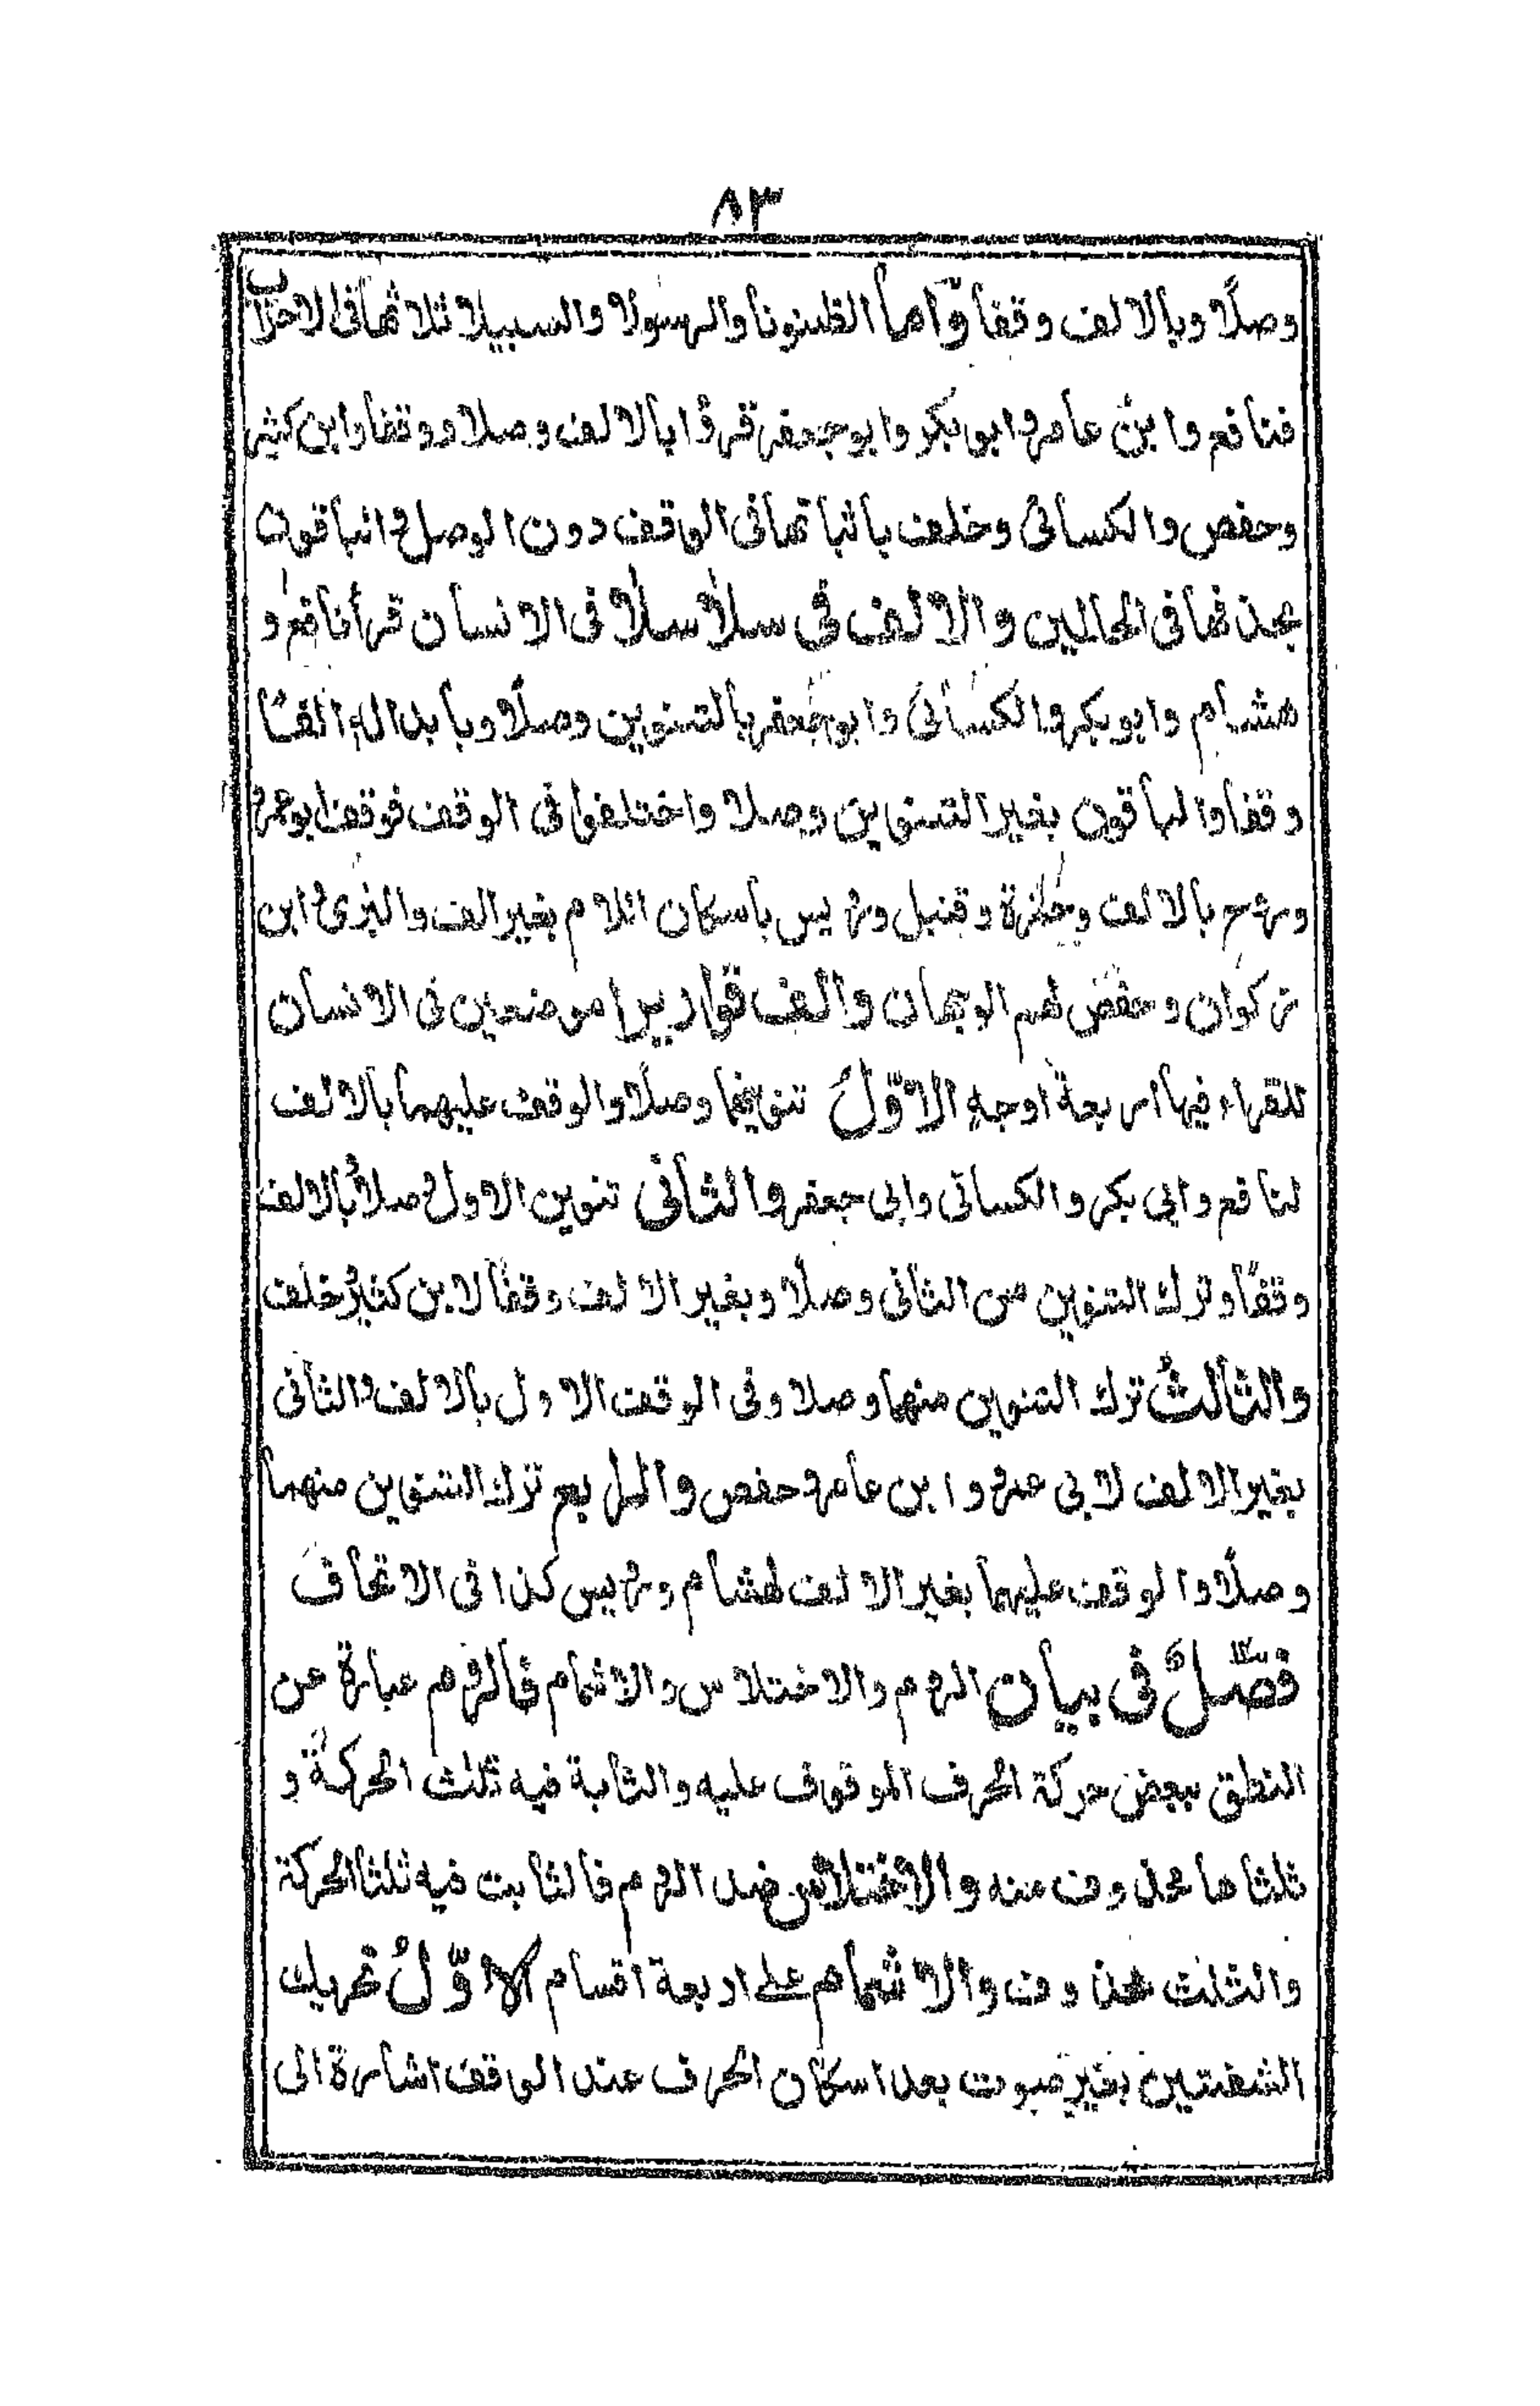 ٨٣
وصلًا وبالالف وقفا وّاما الظنونا والرسولا والسبيلا ثلاثتها فى الاحزاب
فنافع وابن عامر وابو بكر وابو جعفر قرؤا بالالف وصلا ووقفا وابن كثير
وحفص والكسائى وخلف باثباتها فى الوقف دون الوصل والباقون
بحذفها فى الحالين والالف فى سلاسلا فى الانسان قرأ نافع و
هشام وابو بكر والكسائى وابو جعفر بالتنوين وصلًا وبابداله الفًا
وقفا والباقون بغير التنوين وصلا واختلفوا فى الوقف فوقف ابو عمرو
وروح بالالف وحمزة وقنبل ورويس باسكان اللام بغير الف والبزى وابن
ذكوان وحفص لهم الوجهان والف قواريرا موضعين فى الانسان
للقراء فيها اربعة اوجهٍ الاوّلُ تنوينهما وصلًا والوقف عليهما بالالف
لنافع وابى بكر والكسائى وابى جعفر والثانى تنوين الاول وصلًا وبالالف
وقفًا وترك التنوين من الثانى وصلًا وبغير الالف وقفًا لابن كثير وخلف
والثالثُ ترك التنوين منهما وصلا وفى الوقف الاول بالالف والثانى
بغير الالف لابى عمرو وابن عامر وحفص والرابع ترك التنوين منهما
وصلًا والوقف عليهما بغير الالف لهشام ورويس كذا فى الاتحاف
فصلٌ فى بيان الروم والاختلاس والاشمام فالروم عبارة عن
النطق ببعض حركة الحرف الموقوف عليه والثابتة فيه ثلث الحركة و
ثلثاها محذوف منه والاختلاس ضد الروم فالثابت فيه ثلثا الحركة
والثلث محذوف والاشمام على اربعة اقسام الاوّلُ تحريك
الشفتين بغير صوت بعد اسكان الحرف عند الوقف اشارة الى